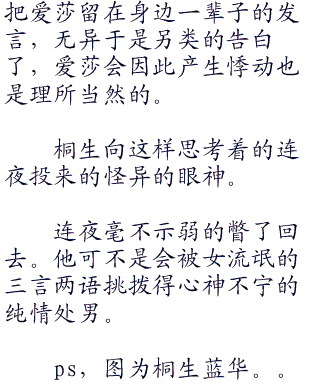 把爱莎留在身边一辈子的发
言，无异于是另类的告白
了，爱莎会因此产生悸动也
是理所当然的。
桐生向这样思考着的连
夜投来的怪异的眼神。
连夜毫不示弱的瞥了回
去。他可不是会被女流氓的
三言两语挑拨得心神不宁的
纯情处男。
ps，图为桐生蓝华。。